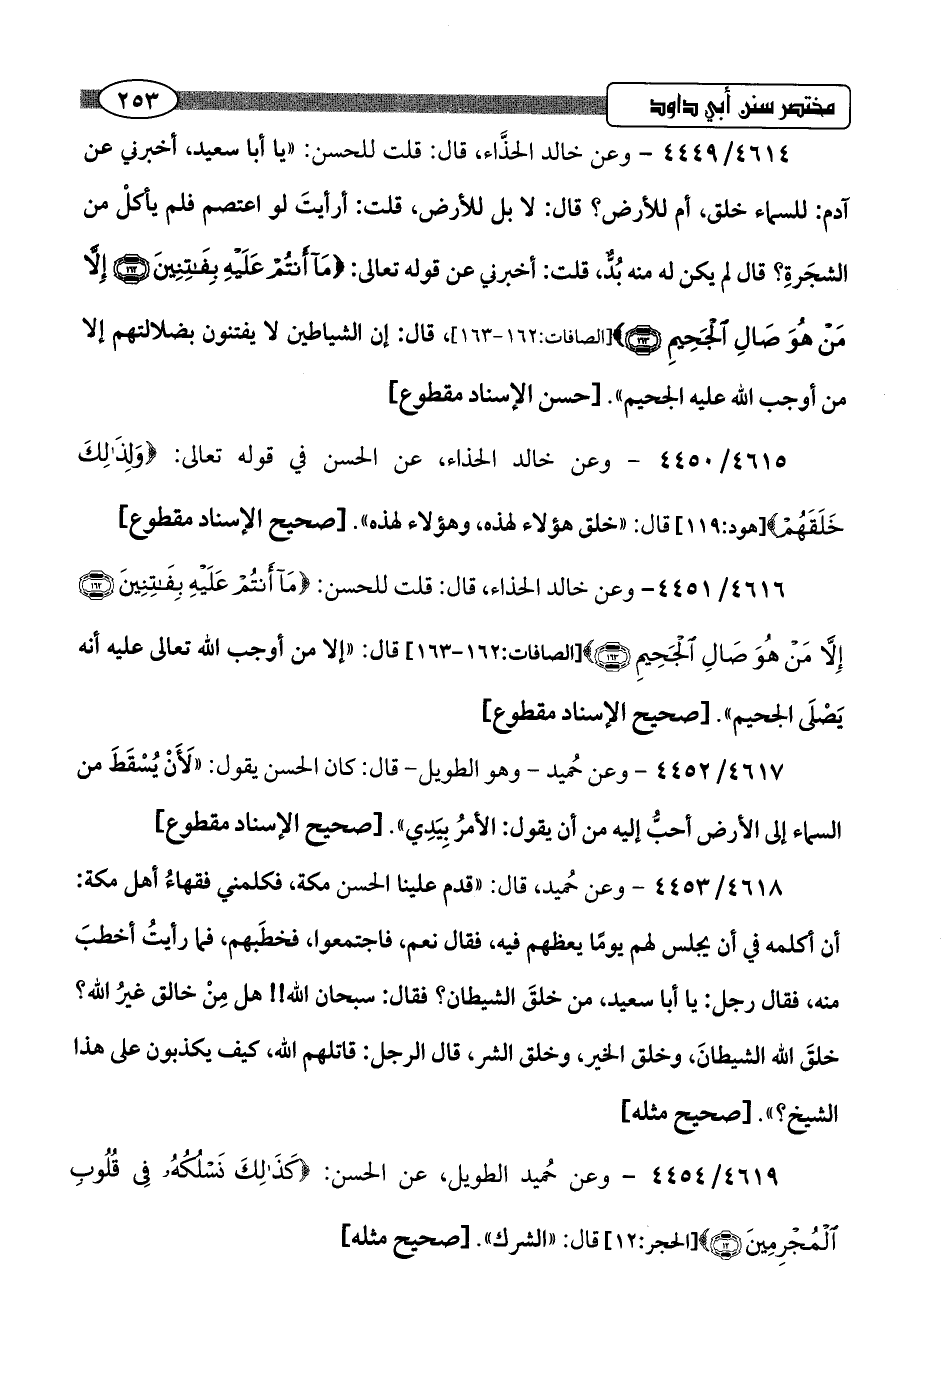 مختصر سنن أبي داود
٢٥٣
٤٤٤٩/٤٦١٤ - وعن خالد الحذَّاء، قال: قلت للحسن: «يا أبا سعيد، أخبرني عن
آدم: للسماء خلق، أم للأرض؟ قال: لا بل للأرض، قلت: أرأيتَ لو اعتصم فلم يأكلْ من
الشجَرةِ؟ قال لم يكن له منه بُدٌّ، قلت: أخبرني عن قوله تعالى: ﴿مَآ أَنتُمْ عَلَيْهِ بِفَـٰتِنِينَ ١٦٢ إِلَّا
مَنْ هُوَ صَالِ ٱلْجَحِيمِ ١٦٣﴾[الصافات:١٦٢-١٦٣]، قال: إن الشياطين لا يفتنون بضلالتهم إلا
من أوجب الله عليه الجحيم». [حسن الإسناد مقطوع]
٤٤٥٠/٤٦١٥ - وعن خالد الحذاء، عن الحسن في قوله تعالى: ﴿وَلِذَٰلِكَ
خَلَقَهُمْ﴾[هود:١١٩] قال: «خلق هؤلاء لهذه، وهؤلاء لهذه». [صحيح الإسناد مقطوع]
٤٤٥١/٤٦١٦- وعن خالد الحذاء، قال: قلت للحسن: ﴿مَآ أَنتُمْ عَلَيْهِ بِفَـٰتِنِينَ ١٦٢
إِلَّا مَنْ هُوَ صَالِ ٱلْجَحِيمِ ١٦٣﴾[الصافات:١٦٢-١٦٣] قال: «إلا من أوجب الله تعالى عليه أنه
يَصْلَى الجحيم». [صحيح الإسناد مقطوع]
٤٤٥٢/٤٦١٧ - وعن حُميد - وهو الطويل- قال: كان الحسن يقول: «لَأَنْ يُسْقَطَ من
السماء إلى الأرض أحبُّ إليه من أن يقول: الأمرُ بِيَدِي». [صحيح الإسناد مقطوع]
٤٤٥٣/٤٦١٨ - وعن حُميد، قال: «قدم علينا الحسن مكة، فكلمني فقهاءُ أهل مكة:
أن أكلمه في أن يجلس لهم يومًا يعظهم فيه، فقال نعم، فاجتمعوا، فخطَبهم، فما رأيتُ أخطبَ
منه، فقال رجل: يا أبا سعيد، من خلقَ الشيطان؟ فقال: سبحان الله!! هل مِنْ خالق غيرُ الله؟
خلقَ الله الشيطانَ، وخلق الخير، وخلق الشر، قال الرجل: قاتلهم الله، كيف يكذبون على هذا
الشيخ؟». [صحيح مثله]
٤٤٥٤/٤٦١٩ - وعن حُميد الطويل، عن الحسن: ﴿كَذَٰلِكَ نَسْلُكُهُۥ فِى قُلُوبِ
ٱلْمُجْرِمِينَ ١٢﴾[الحجر:١٢] قال: «الشرك». [صحيح مثله]